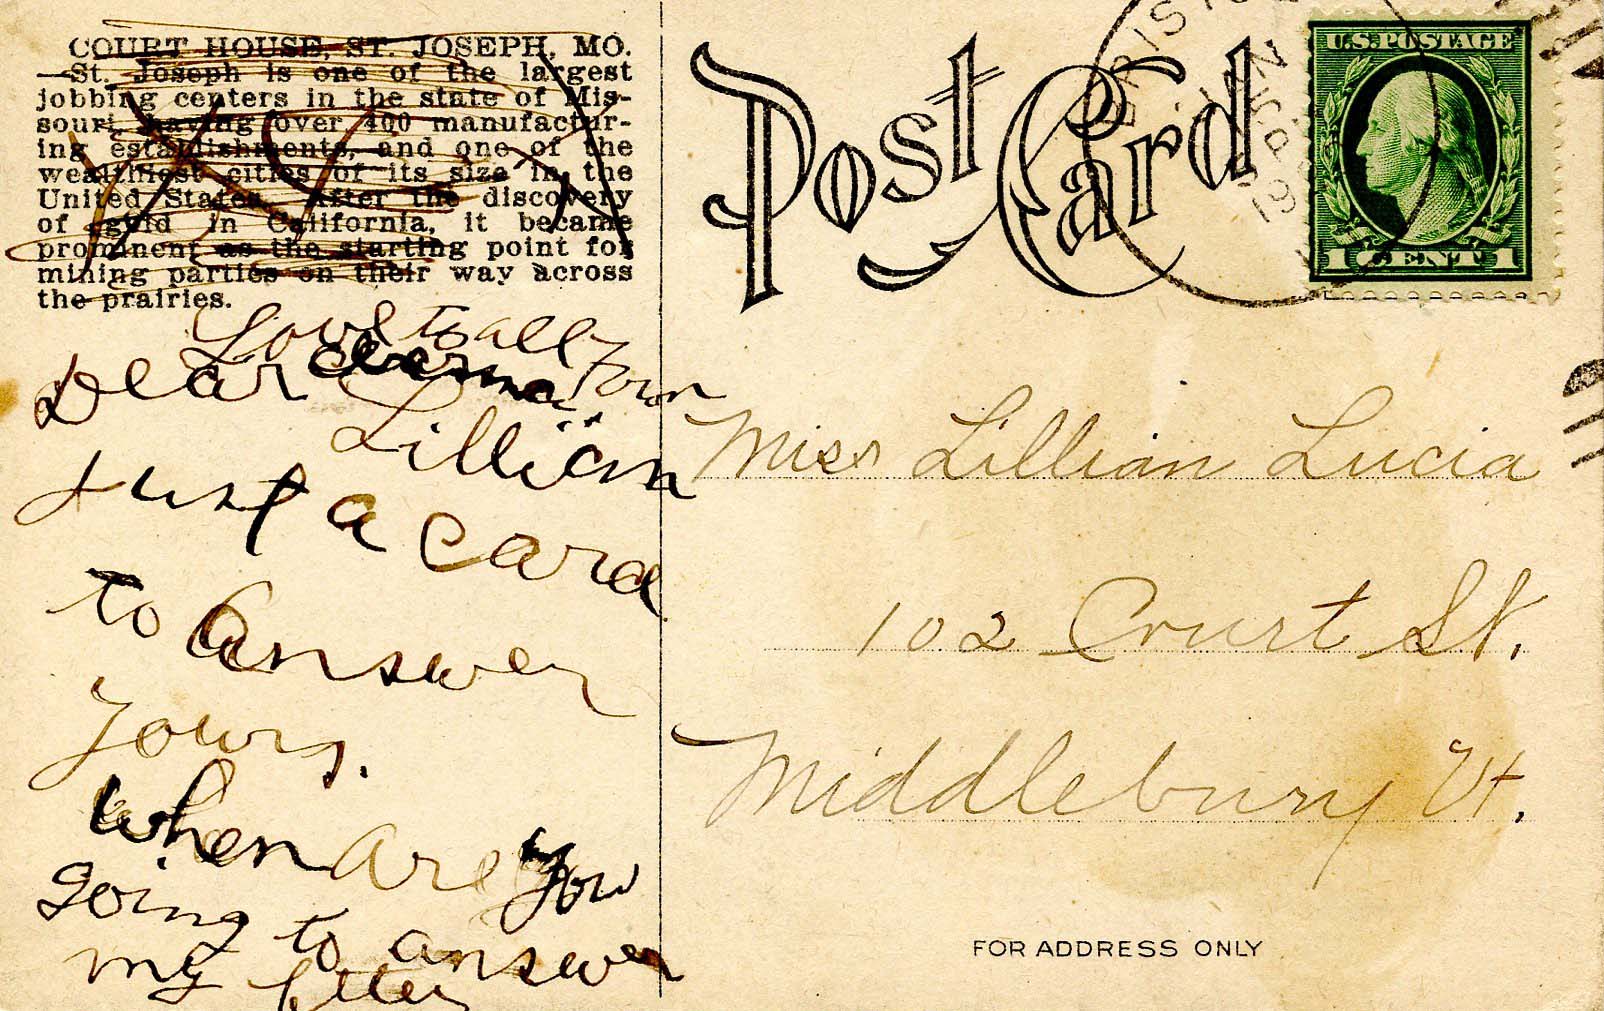 COURT HOUSE, ST. JOSEPH, MO.
—St. Joseph is one of the largest
jobbing centers in the state of Mis-
souri, having over 400 manufactur-
ing establishments, and one of the
wealthiest cities of its size in the
United States. After the discovery
of gold in California, it became
prominent as the starting point for
mining parties on their way across
the prairies.
Love to all from
Dear
Lillian
Just a card
to answer
yours.
when are you
going to answer
my letter
Post Card
BRISTOL
JAN
5
PM
19
U.S. POSTAGE
1 CENT 1
Miss Lillian Lucia
102 Court St.
Middlebury Vt.
FOR ADDRESS ONLY